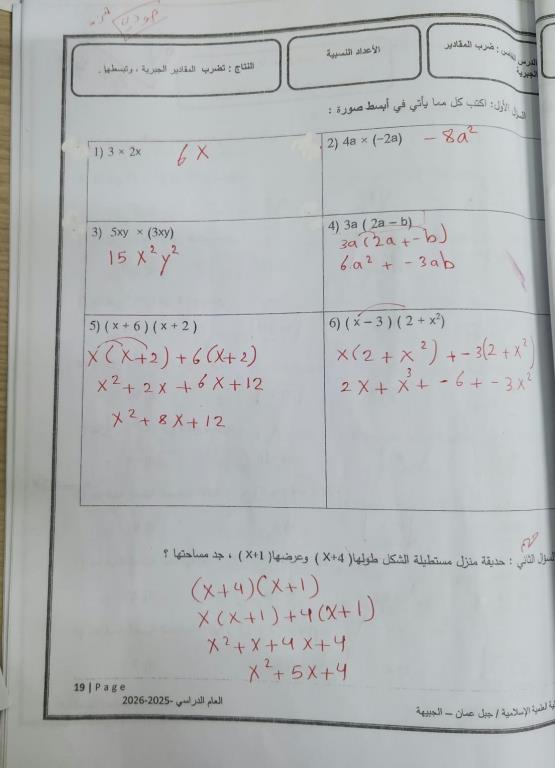 الدرس الخامس : ضرب المقادير الجبرية
الأعداد النسبية
النتاج : تضرب المقادير الجبرية ، وتبسطها .
السؤال الأول: اكتب كل مما يأتي في أبسط صورة :
1) 3 × 2x 6x
2) 4a × (−2a) − 8a²
3) 5xy × (3xy)
15 x² y²
4) 3a ( 2a − b)
3a (2a + −b)
6a² + − 3ab
5) ( x + 6 ) ( x + 2 )
x (x+2) + 6(x+2)
x² + 2x + 6x + 12
x² + 8x + 12
6) ( x − 3 ) ( 2 + x²)
x(2 + x²) + −3(2 + x²)
2x + x³ + − 6 + − 3x²
السؤال الثاني : حديقة منزل مستطيلة الشكل طولها( x+4 ) وعرضها( x+1 ) ، جد مساحتها ؟
(x+4)(x+1)
x (x+1) + 4(x+1)
x² + x + 4x + 4
x² + 5x + 4
19 | Page
العام الدراسي -2025-2026
العلمية الإسلامية / جبل عمان – الجبيهة